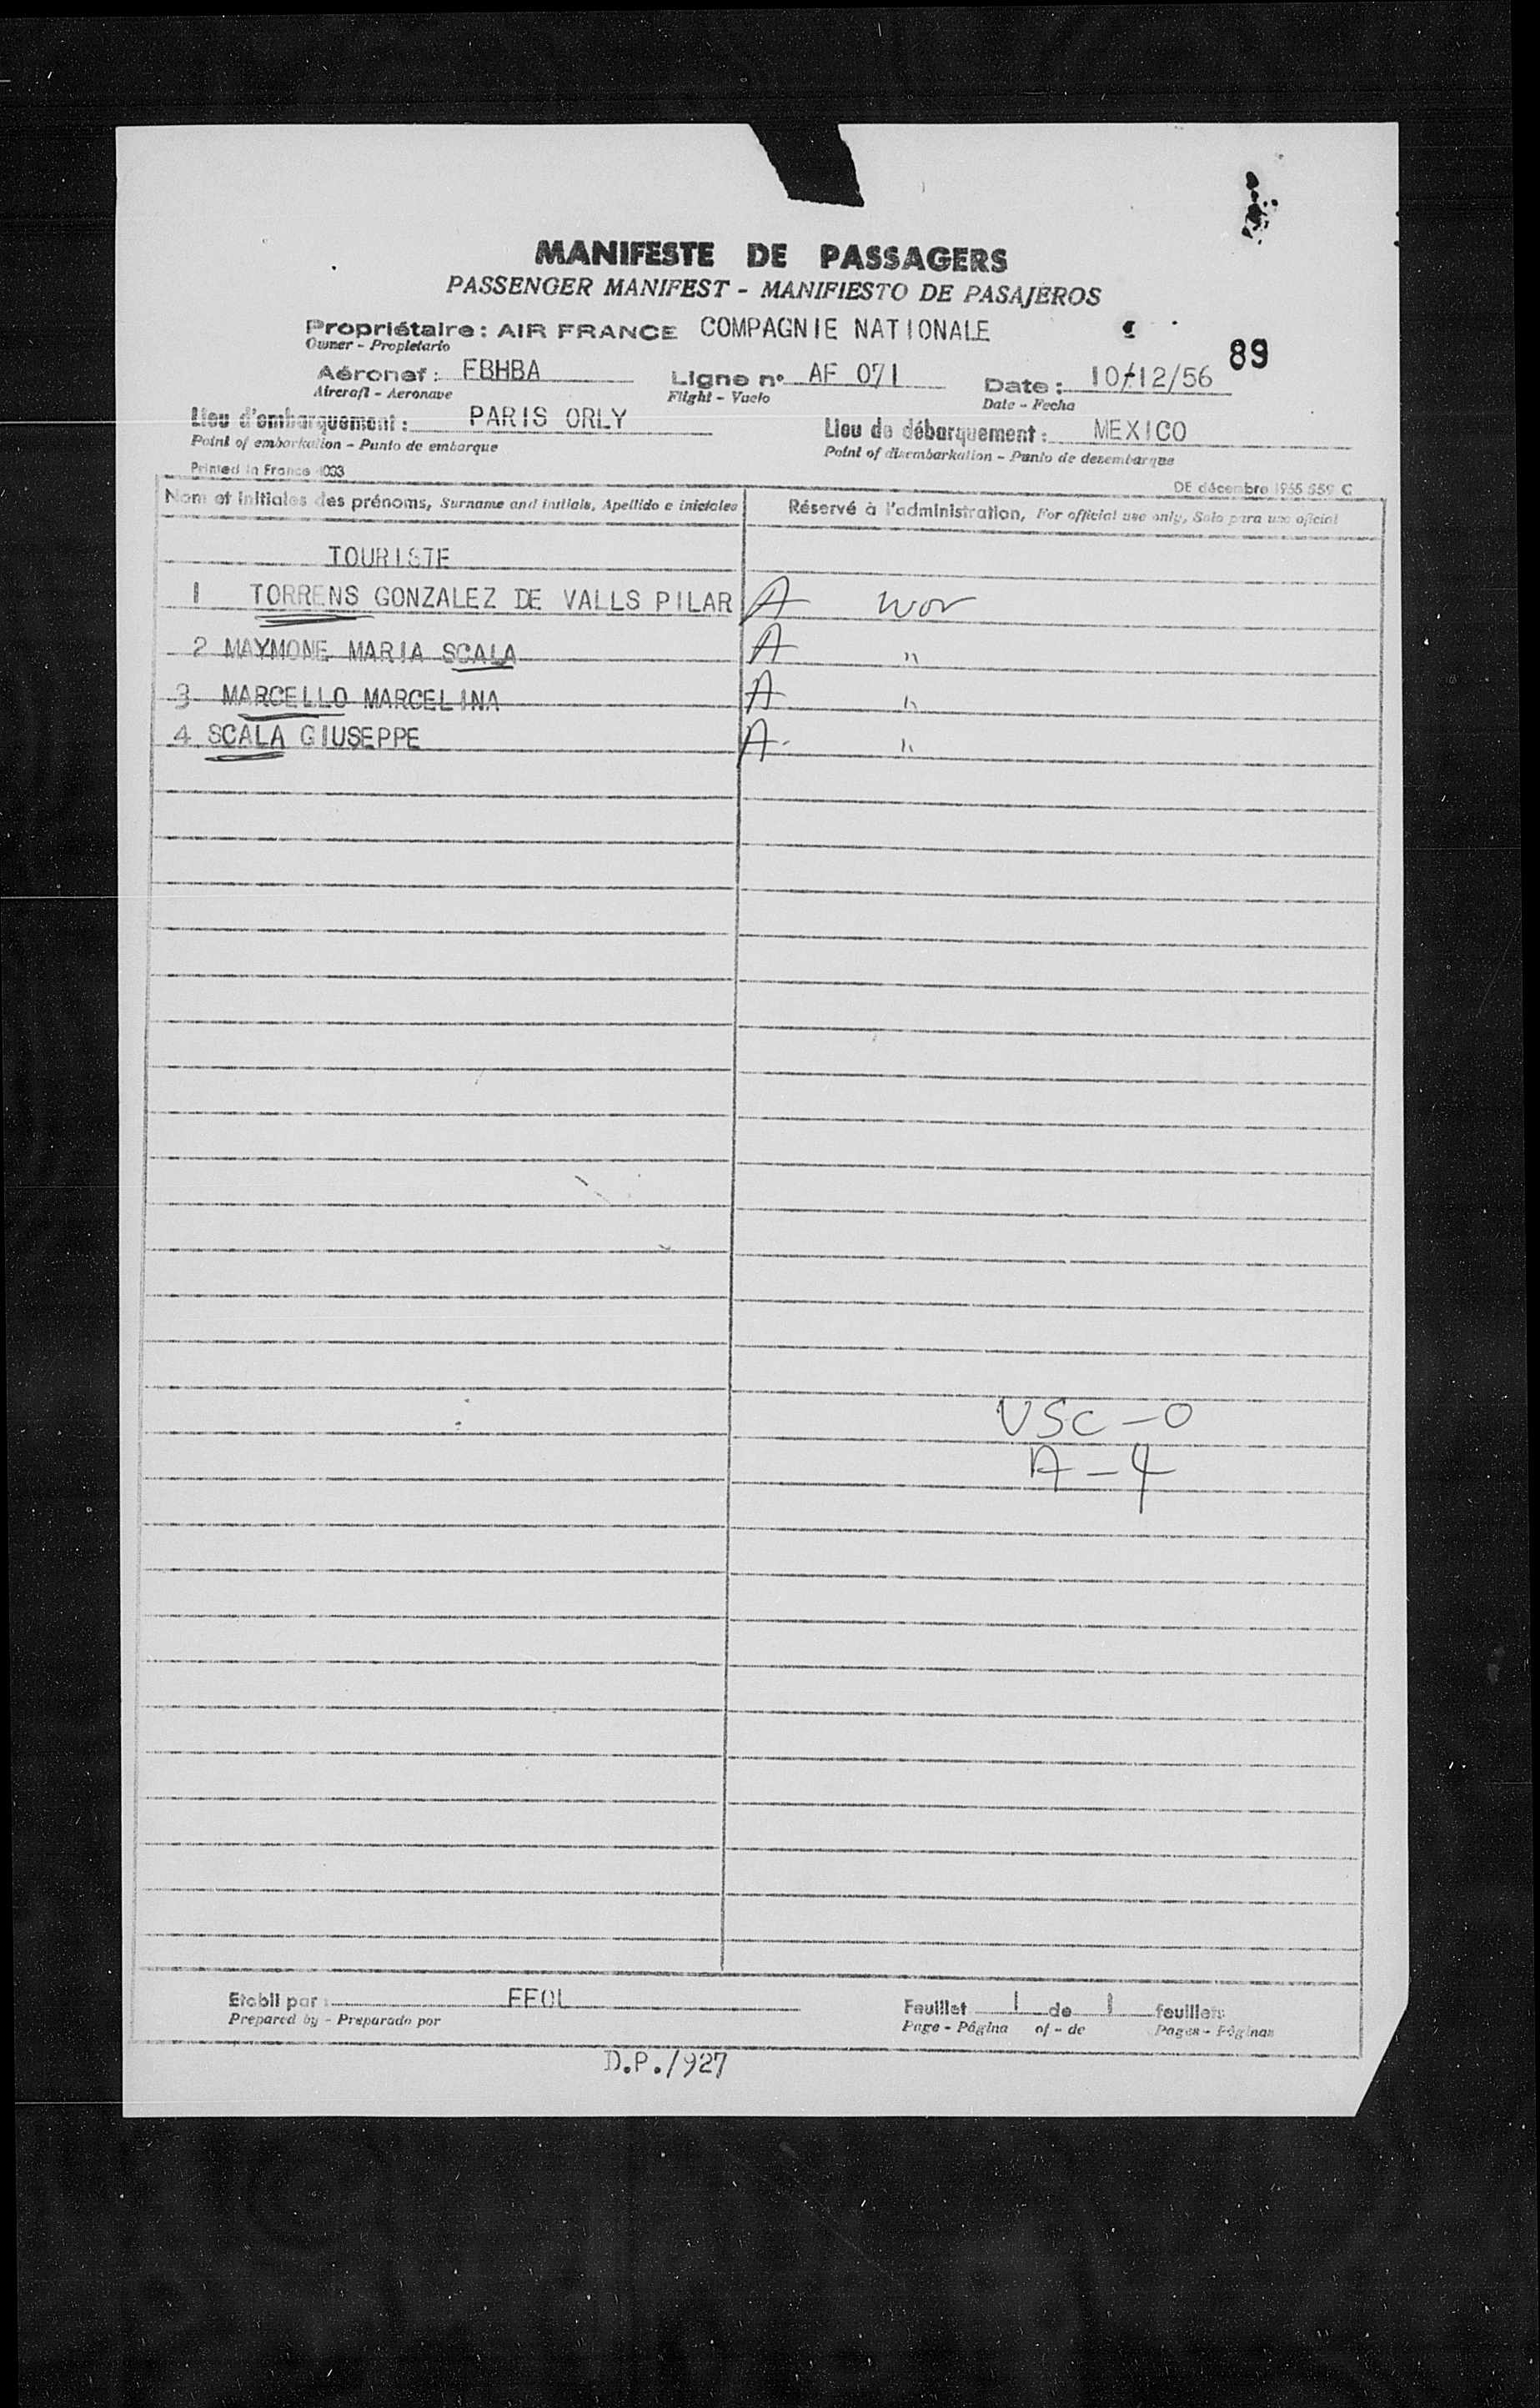 MANIFESTE DE PASSAGERS
PASSENGER MANIFEST - MANIFIESTO DE PASAJEROS
Propriétaire : AIR FRANCE COMPAGNIE NATIONALE
Owner - Propietario
89
Aéronef : FBHBA Ligne n° AF 071 Date : 10/12/56
Aircraft - Aeronave Flight - Vuelo Date - Fecha
Lieu d'embarquement : PARIS ORLY Lieu de débarquement : MEXICO
Point of embarkation - Punto de embarque Point of disembarkation - Punto de desembarque
Printed in France 4033 DE décembre 1955 559 C
Nom et initiales des prénoms, Surname and initials, Apellido e iniciales Réservé à l'administration, For official use only, Solo para uso oficial
TOURISTE
1 TORRENS GONZALEZ DE VALLS PILAR A wor
2 MAYMONE MARIA SCALA A "
3 MARCELLO MARCELINA A "
4 SCALA GIUSEPPE A - "
USC - 0
A - 4
Etabli par : Feuillet 1 de 1 feuillets
Prepared by - Preparado por Page - Página of - de Pages - Páginas
D.P./927